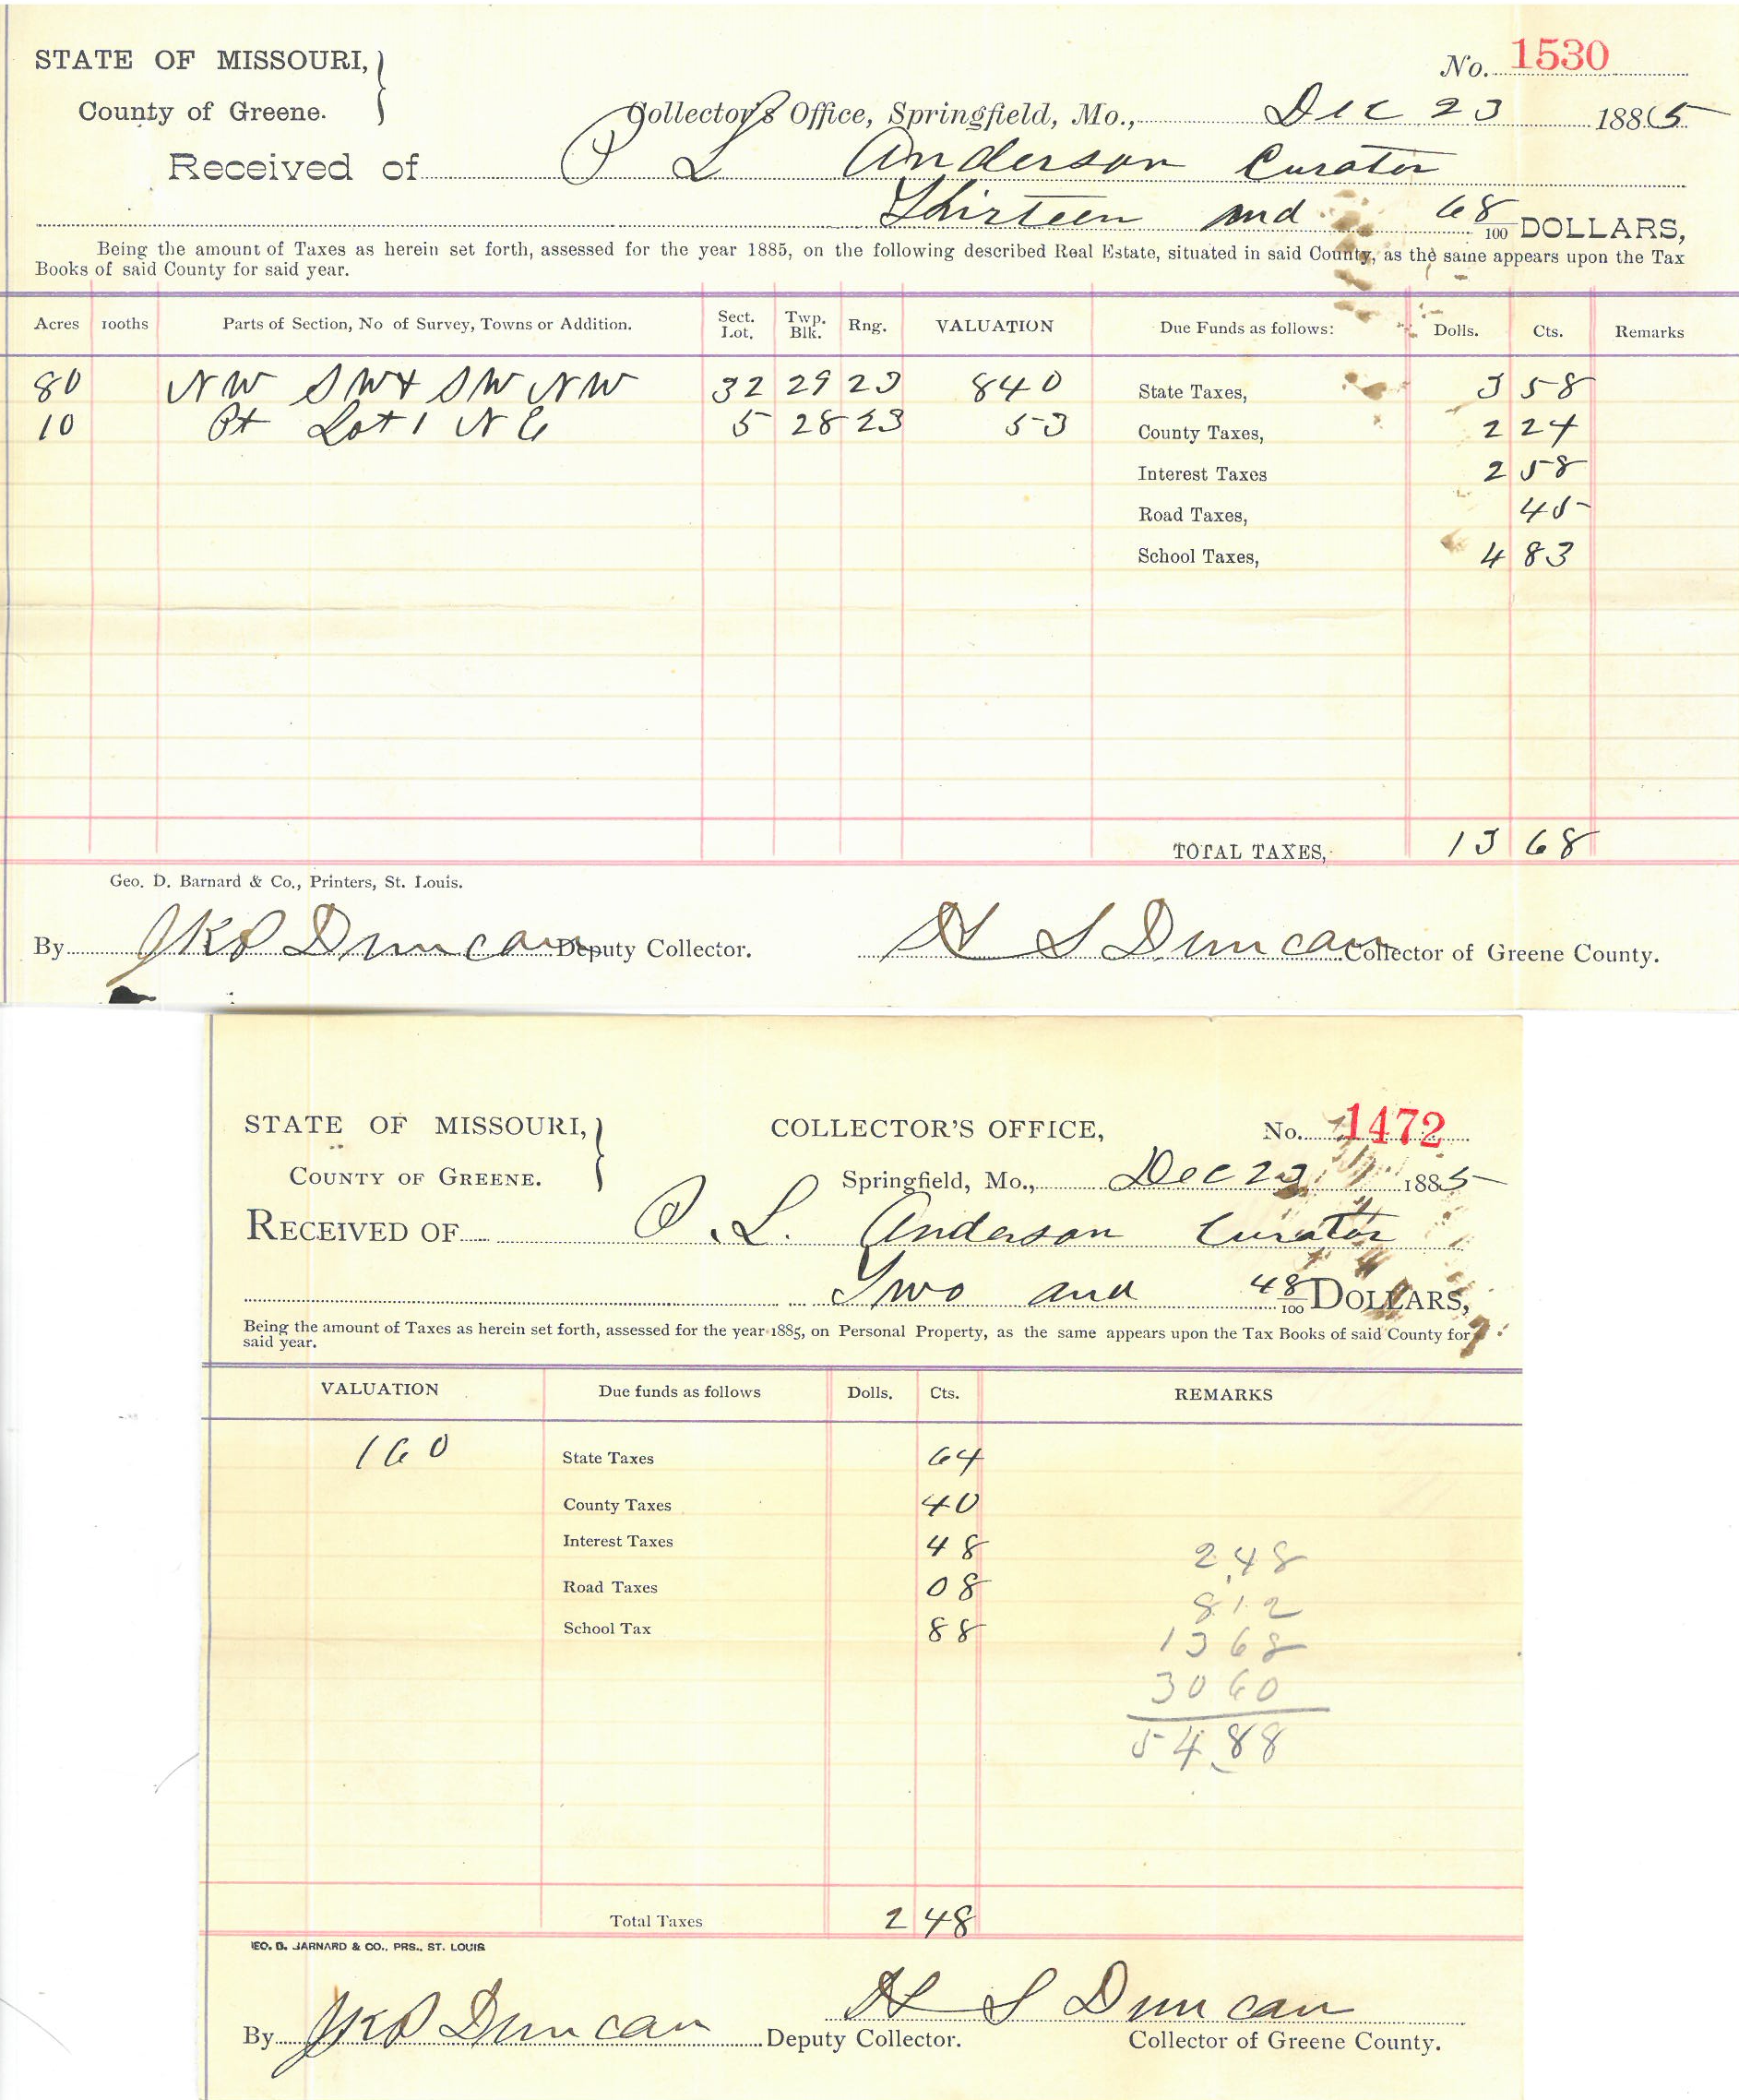 STATE OF MISSOURI, No. 1530
County of Greene. Collector's Office, Springfield, Mo., Dec 23 1885
Received of P L Anderson Curator
Thirteen and 68/100 DOLLARS,
Being the amount of Taxes as herein set forth, assessed for the year 1885, on the following described Real Estate, situated in said County, as the same appears upon the Tax
Books of said County for said year.
Acres 100ths Parts of Section, No of Survey, Towns or Addition. Sect. Lot. Twp. Blk. Rng. VALUATION Due Funds as follows: Dolls. Cts. Remarks
80 NW SW & SW NW 32 29 23 840 State Taxes, 3 58
10 Pt Lot 1 N E 5 28 23 53 County Taxes, 2 24
Interest Taxes 2 58
Road Taxes, 45
School Taxes, 4 83
TOTAL TAXES, 13 68
Geo. D. Barnard & Co., Printers, St. Louis.
By JKP Duncan Deputy Collector. H S Duncan Collector of Greene County.
STATE OF MISSOURI, COLLECTOR'S OFFICE, No. 1472
COUNTY OF GREENE. Springfield, Mo., Dec 23 1885
RECEIVED OF P. L. Anderson Curator
Two and 48/100 DOLLARS,
Being the amount of Taxes as herein set forth, assessed for the year 1885, on Personal Property, as the same appears upon the Tax Books of said County for
said year.
VALUATION Due funds as follows Dolls. Cts. REMARKS
160 State Taxes 64
County Taxes 40
Interest Taxes 48 2.48
Road Taxes 08 8.12
School Tax 88 1368
3060
54.88
Total Taxes 2 48
GEO. D. BARNARD & CO., PRS., ST. LOUIS
By JKP Duncan Deputy Collector. H S Duncan Collector of Greene County.